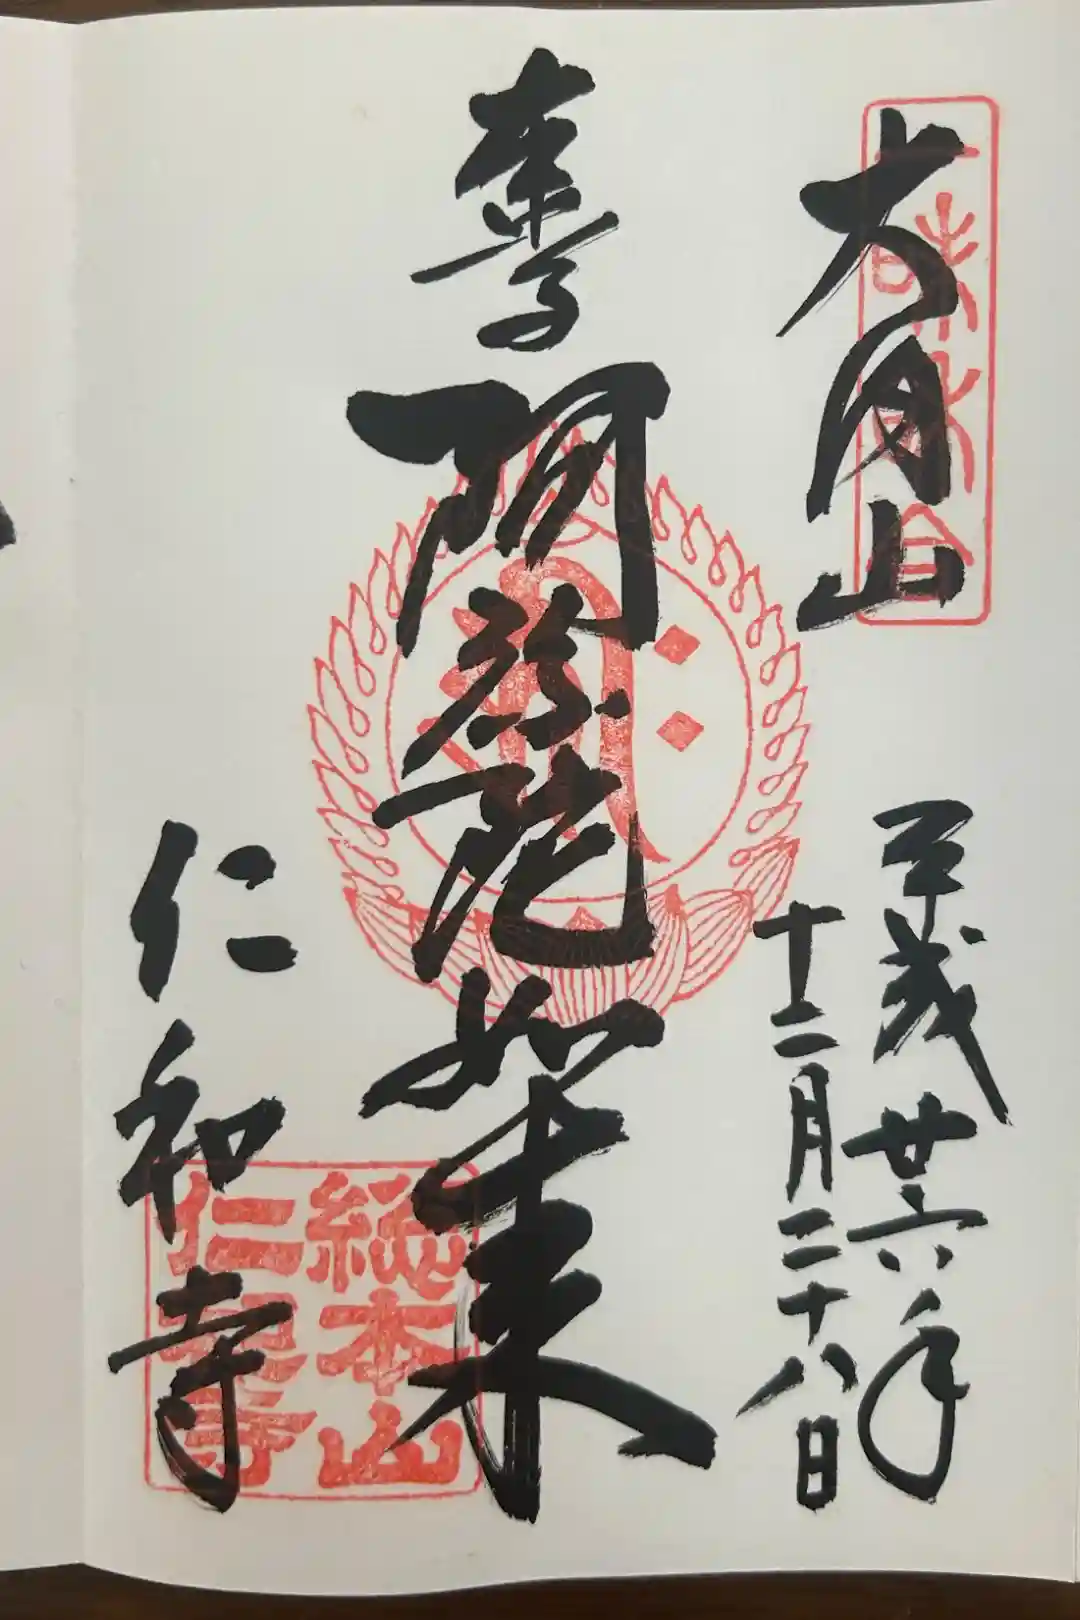 大内山
一味和合
平成廿六年
十二月二十八日
阿弥陀如来
仁和寺
総本山
仁和寺